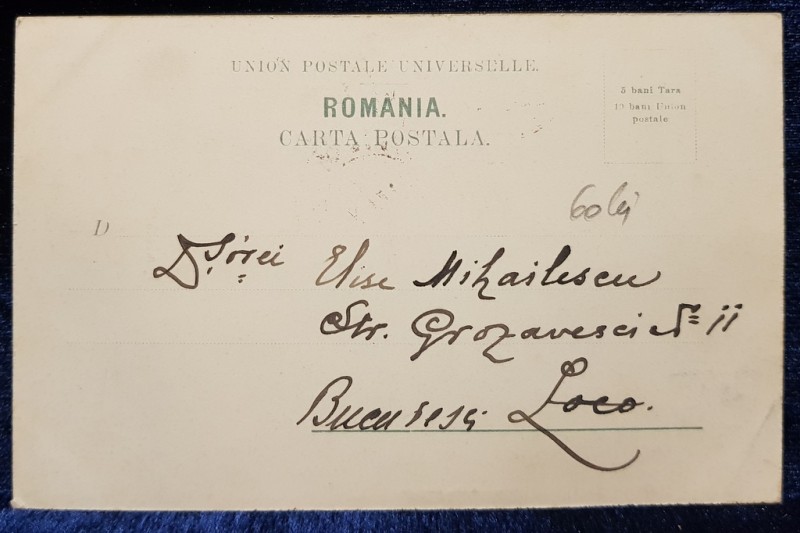 UNION POSTALE UNIVERSELLE.
ROMÂNIA.
CARTA POSTALA.
5 bani Tara
10 bani Union
postale
60 lei
D
D-șórei Elise Mihailescu
Str. Grozavesci No 11
Bucuresci Loco.